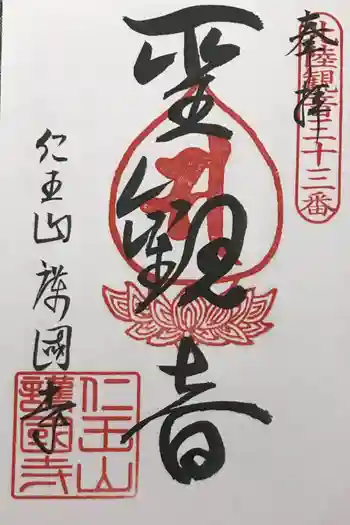 奉拝
大陸観音三十三番
聖観音
仁王山護國寺
仁王山
護國寺